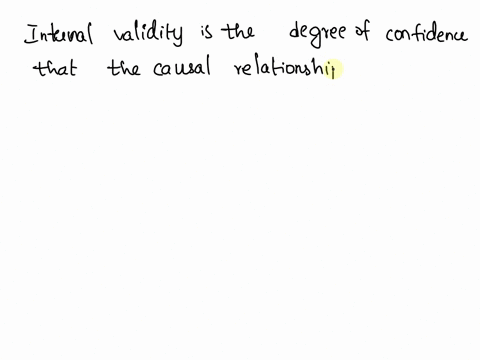 Internal validity is the degree of confidence
that the causal relationship